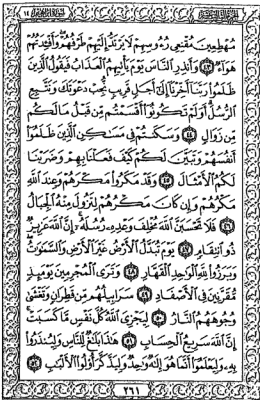 مُهْطِعِينَ مُقْنِعِى رُءُوسِهِمْ لَا يَرْتَدُّ إِلَيْهِمْ طَرْفُهُمْ وَأَفْـِٔدَتُهُمْ
هَوَآءٌ ٤٣ وَأَنذِرِ ٱلنَّاسَ يَوْمَ يَأْتِيهِمُ ٱلْعَذَابُ فَيَقُولُ ٱلَّذِينَ
ظَلَمُوا۟ رَبَّنَآ أَخِّرْنَآ إِلَىٰٓ أَجَلٍ قَرِيبٍ نُّجِبْ دَعْوَتَكَ وَنَتَّبِعِ
ٱلرُّسُلَ أَوَلَمْ تَكُونُوٓا۟ أَقْسَمْتُم مِّن قَبْلُ مَا لَكُم
مِّن زَوَالٍ ٤٤ وَسَكَنتُمْ فِى مَسَٰكِنِ ٱلَّذِينَ ظَلَمُوٓا۟
أَنفُسَهُمْ وَتَبَيَّنَ لَكُمْ كَيْفَ فَعَلْنَا بِهِمْ وَضَرَبْنَا
لَكُمُ ٱلْأَمْثَالَ ٤٥ وَقَدْ مَكَرُوا۟ مَكْرَهُمْ وَعِندَ ٱللَّهِ
مَكْرُهُمْ وَإِن كَانَ مَكْرُهُمْ لِتَزُولَ مِنْهُ ٱلْجِبَالُ
٤٦ فَلَا تَحْسَبَنَّ ٱللَّهَ مُخْلِفَ وَعْدِهِۦ رُسُلَهُۥٓ إِنَّ ٱللَّهَ عَزِيزٌ
ذُو ٱنتِقَامٍ ٤٧ يَوْمَ تُبَدَّلُ ٱلْأَرْضُ غَيْرَ ٱلْأَرْضِ وَٱلسَّمَٰوَٰتُ
وَبَرَزُوا۟ لِلَّهِ ٱلْوَٰحِدِ ٱلْقَهَّارِ ٤٨ وَتَرَى ٱلْمُجْرِمِينَ يَوْمَئِذٍ
مُّقَرَّنِينَ فِى ٱلْأَصْفَادِ ٤٩ سَرَابِيلُهُم مِّن قَطِرَانٍ وَتَغْشَىٰ
وُجُوهَهُمُ ٱلنَّارُ ٥٠ لِيَجْزِىَ ٱللَّهُ كُلَّ نَفْسٍ مَّا كَسَبَتْ
إِنَّ ٱللَّهَ سَرِيعُ ٱلْحِسَابِ ٥١ هَٰذَا بَلَٰغٌ لِّلنَّاسِ وَلِيُنذَرُوا۟
بِهِۦ وَلِيَعْلَمُوٓا۟ أَنَّمَا هُوَ إِلَٰهٌ وَٰحِدٌ وَلِيَذَّكَّرَ أُو۟لُوا۟ ٱلْأَلْبَٰبِ ٥٢
٢٦١